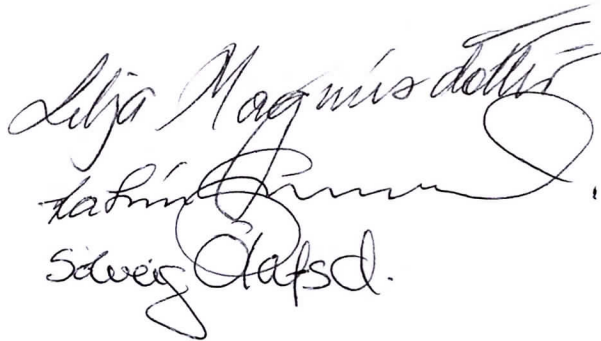 Lilja Magnúsdóttir
Katrín
Sólveig Ólafsd.